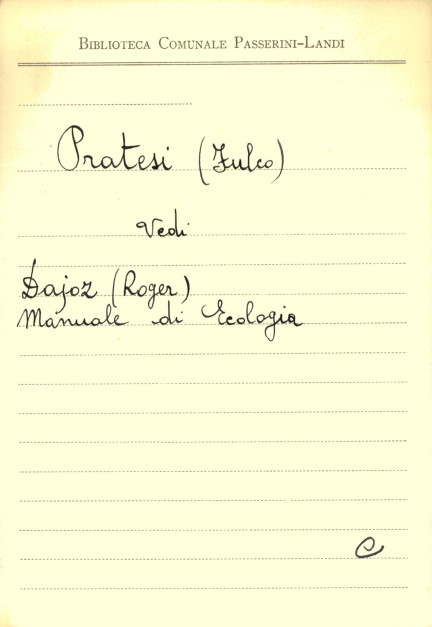 BIBLIOTECA COMUNALE PASSERINI-LANDI
Pratesi (Fulco)
Vedi
Dajoz (Roger)
Manuale di Ecologia
e